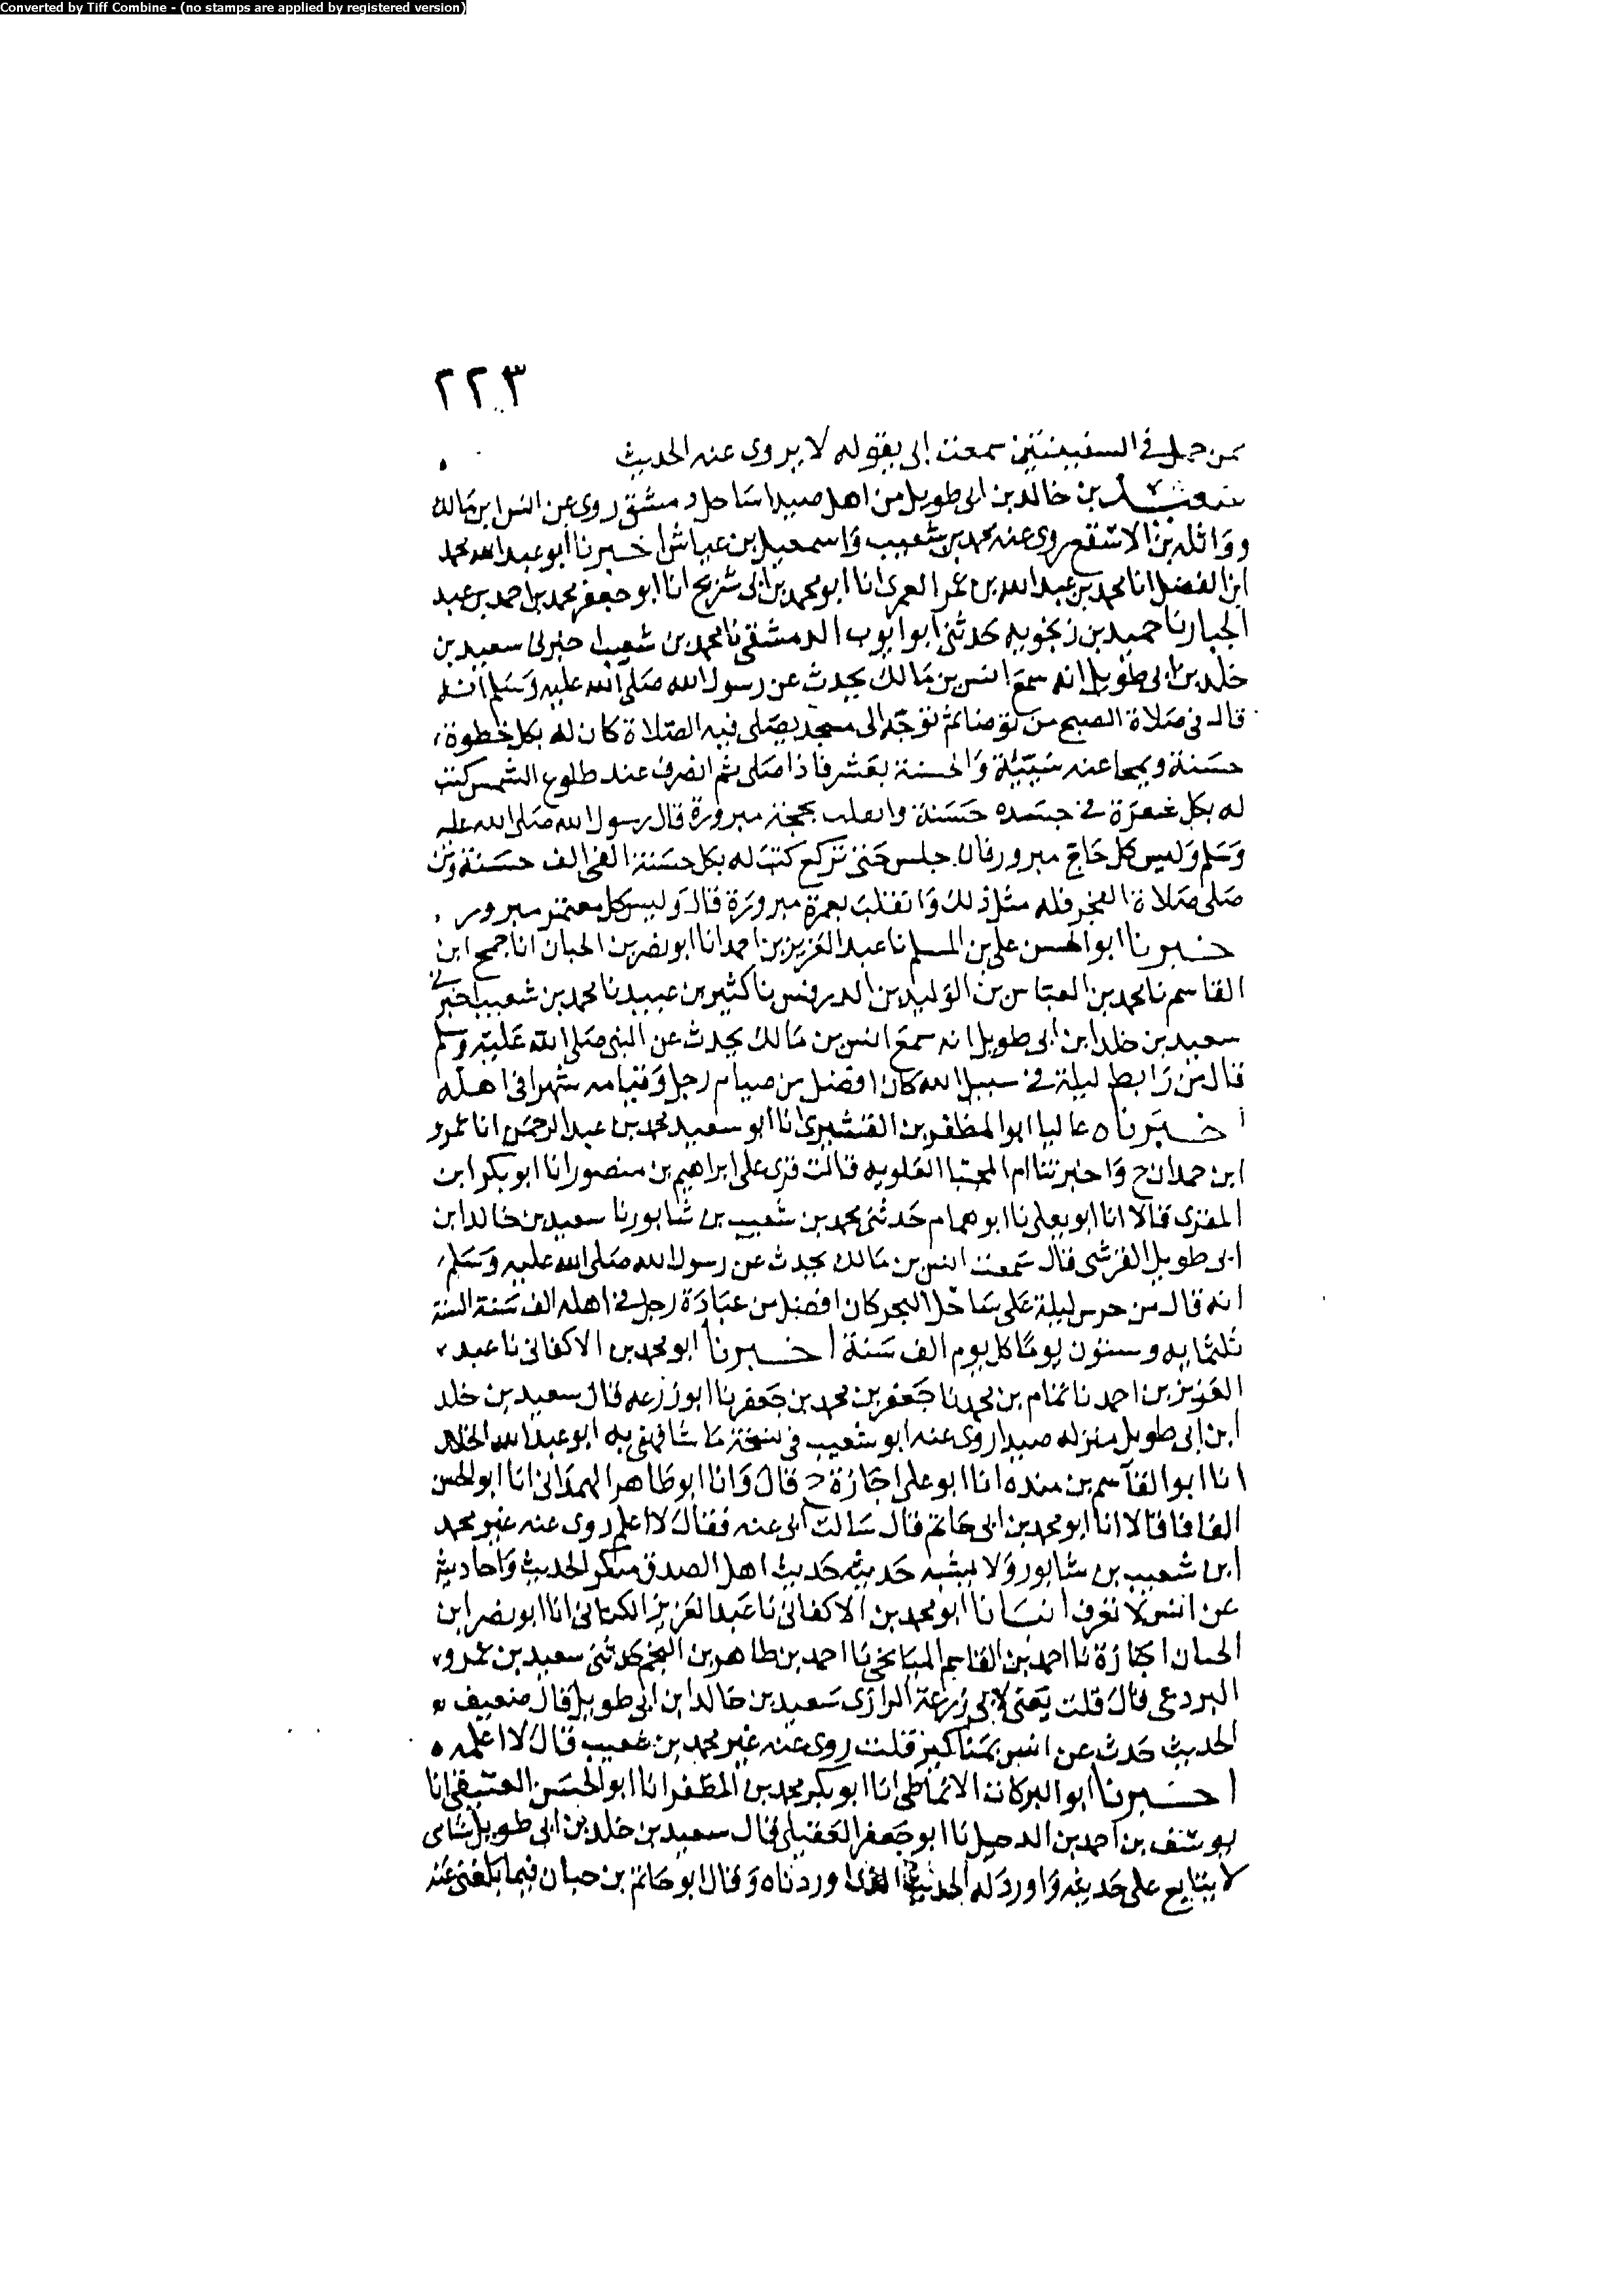 Converted by Tiff Combine - (no stamps are applied by registered version)
٢٢٣
ممن حمل في السفينتين سمعت ابي يقوله لا يروى عنه الحديث
سعيد بن خالد بن ابي طويل من اهل صيدا ساحل دمشق روى عن انس ابن مالك
وواثله بن الاسقع روى عنه محمد بن شعيب واسمعيل بن عياش اخبرنا ابو عبد الله محمد
ابن الفضل انا محمد بن عبد الله بن عمر العمرى انا ابو محمد بن ابي شريح انا ابو جعفر محمد بن احمد بن عبد
الجبار نا حميد بن زنجويه حدثني ابو ايوب الدمشقي نا محمد بن شعيب اخبرني سعيد بن
خلد بن ابي طويل انه سمع انس بن مالك يحدث عن رسول الله صلى الله عليه وسلم انه
قال في صلاة الصبح من توضا ثم توجه الى مسجد يصلى فيه الصلاة كان له بكل خطوة
حسنة ويمحا عنه سيئة والحسنة بعشر فاذا صلى ثم انصرف عند طلوع الشمس كتب
له بكل شعرة في جسده حسنة وانقلب بحجة مبرورة قال رسول الله صلى الله عليه
وسلم وليس كل حاج مبرور فان جلس حتى تركع كتب له بكل حسنة الفى الف حسنة ومن
صلى صلاة الفجر فله مثل ذلك وانقلب بعمرة مبرورة قال وليس كل معتمر مبرور
خبرنا ابو الحسن علي بن المسلم نا عبد العزيز بن احمد انا ابو نصر بن الحبان انا جمح ابن
القاسم نا محمد بن العباس بن الوليد بن الدرفس نا كثير بن عبيد نا محمد بن شعيب اخبرني
سعيد بن خلد ابن ابي طويل انه سمع انس بن مالك يحدث عن النبي صلى الله عليه وسلم
قال من رابط ليلة في سبيل الله كان افضل من صيام رجل وقيامه شهرا في اهله
اخبرناه عاليا ابو المظفر بن القشيرى انا ابو سعيد محمد بن عبد الرحمن انا عمرو
ابن حمدان ح واخبرتنا ام المجتبا العلويه قالت قرى على ابراهيم بن منصور انا ابو بكر ابن
المقرى قالا انا ابو يعلى نا ابو همام حدثني محمد بن شعيب بن شابور نا سعيد بن خالد ابن
ابي طويل القرشى قال سمعت انس بن مالك يحدث عن رسول الله صلى الله عليه وسلم
انه قال من حرس ليلة على ساحل البحر كان افضل من عبادة رجل في اهله الف سنة السنة
ثلثمايه وستون يوما كل يوم الف سنة اخبرنا ابو محمد بن الاكفاني نا عبد
العزيز بن احمد نا تمام بن محمد نا جعفر بن محمد بن جعفر نا ابو زرعه قال سعيد بن خلد
ابن ابي طويل منزله صيدا روى عنه ابو شعيب في نسخة ما شافهني به ابو عبد الله الخلال
انا ابو القاسم بن منده انا ابو على اجازة ح قال وانا ابو طاهر الهمداني انا ابو الحسن
الفافا قالا انا ابو محمد بن ابي حاتم قال سالت ابى عنه فقال لا اعلم روى عنه غير محمد
ابن شعيب بن شابور ولا يشبه حديثه حديث اهل الصدق منكر الحديث واحاديثه
عن انس لا تعرف انبانا ابو محمد بن الاكفاني نا عبد العزيز الكتاني انا ابو نصر ابن
الحبان اجازة نا احمد بن القاسم الميانجي نا احمد بن طاهر بن النجم حدثني سعيد بن عمرو
البردعي قال قلت يعنى لابي زرعة الرازى سعيد بن خالد ابن ابي طويل قال ضعيف
الحديث حدث عن انس بمناكير قلت روى عنه غير محمد بن شعيب قال لا اعلمه
اخبرنا ابو البركات الانماطي انا ابو بكر محمد بن المظفر انا ابو الحسن العتيقي انا
يوسف بن احمد بن الدخيل نا ابو جعفر العقيلي قال سعيد بن خلد بن ابي طويل شامي
لا يتابع على حديثه واورد له الحديث الذى اوردناه وقال ابو حاتم بن حبان فيما بلغني عنه